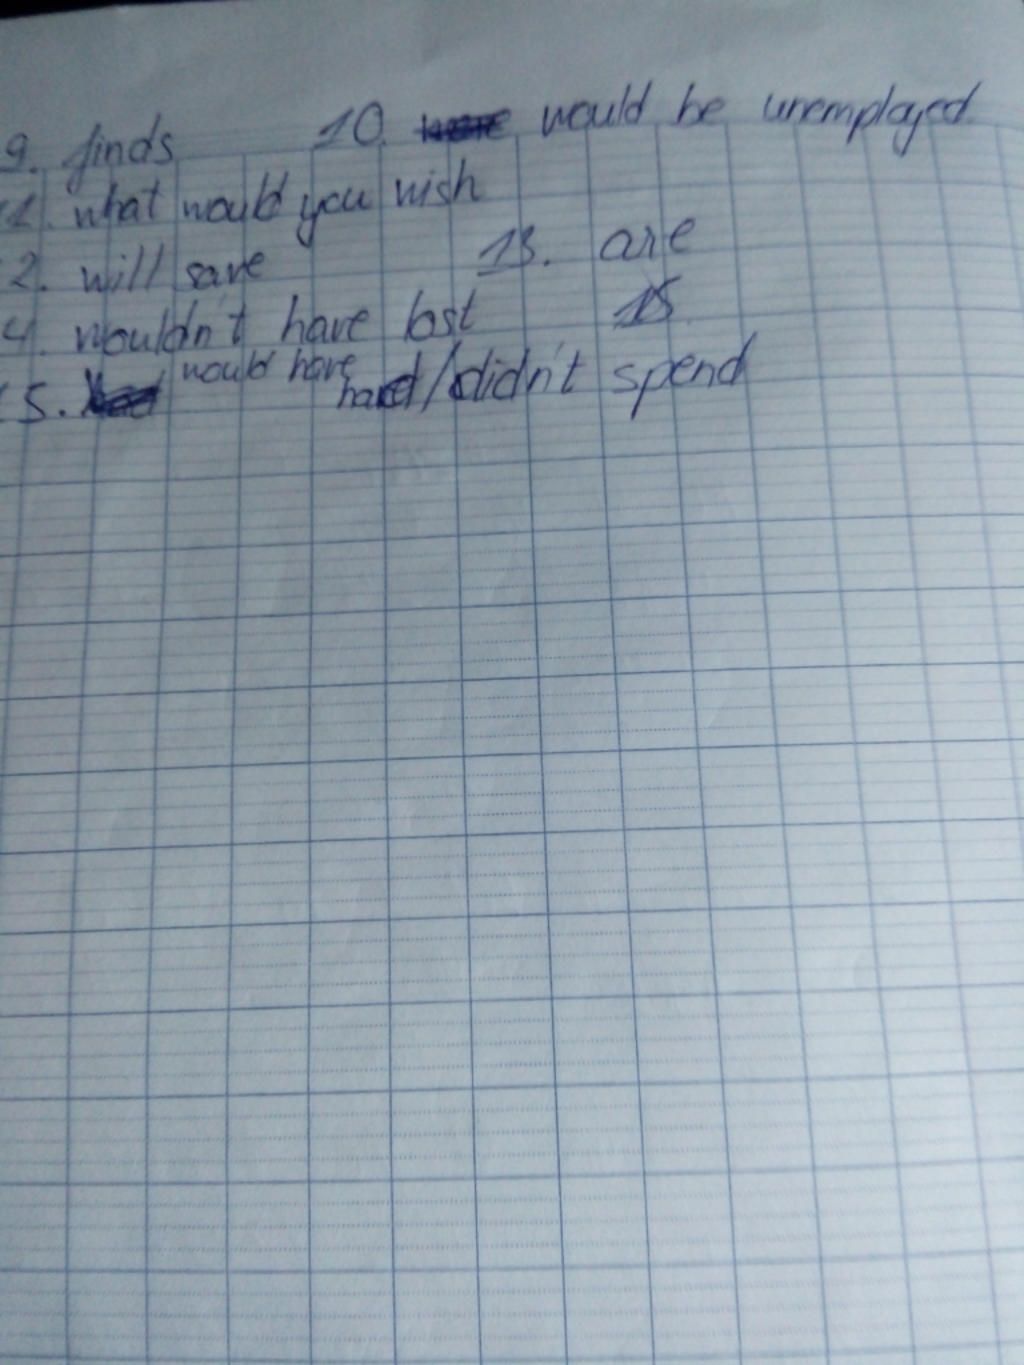 9. finds 10. would be unemployed
1. what would you wish
2. will save 13. are
4. wouldn't have lost 15
5. would have had/didn't spend